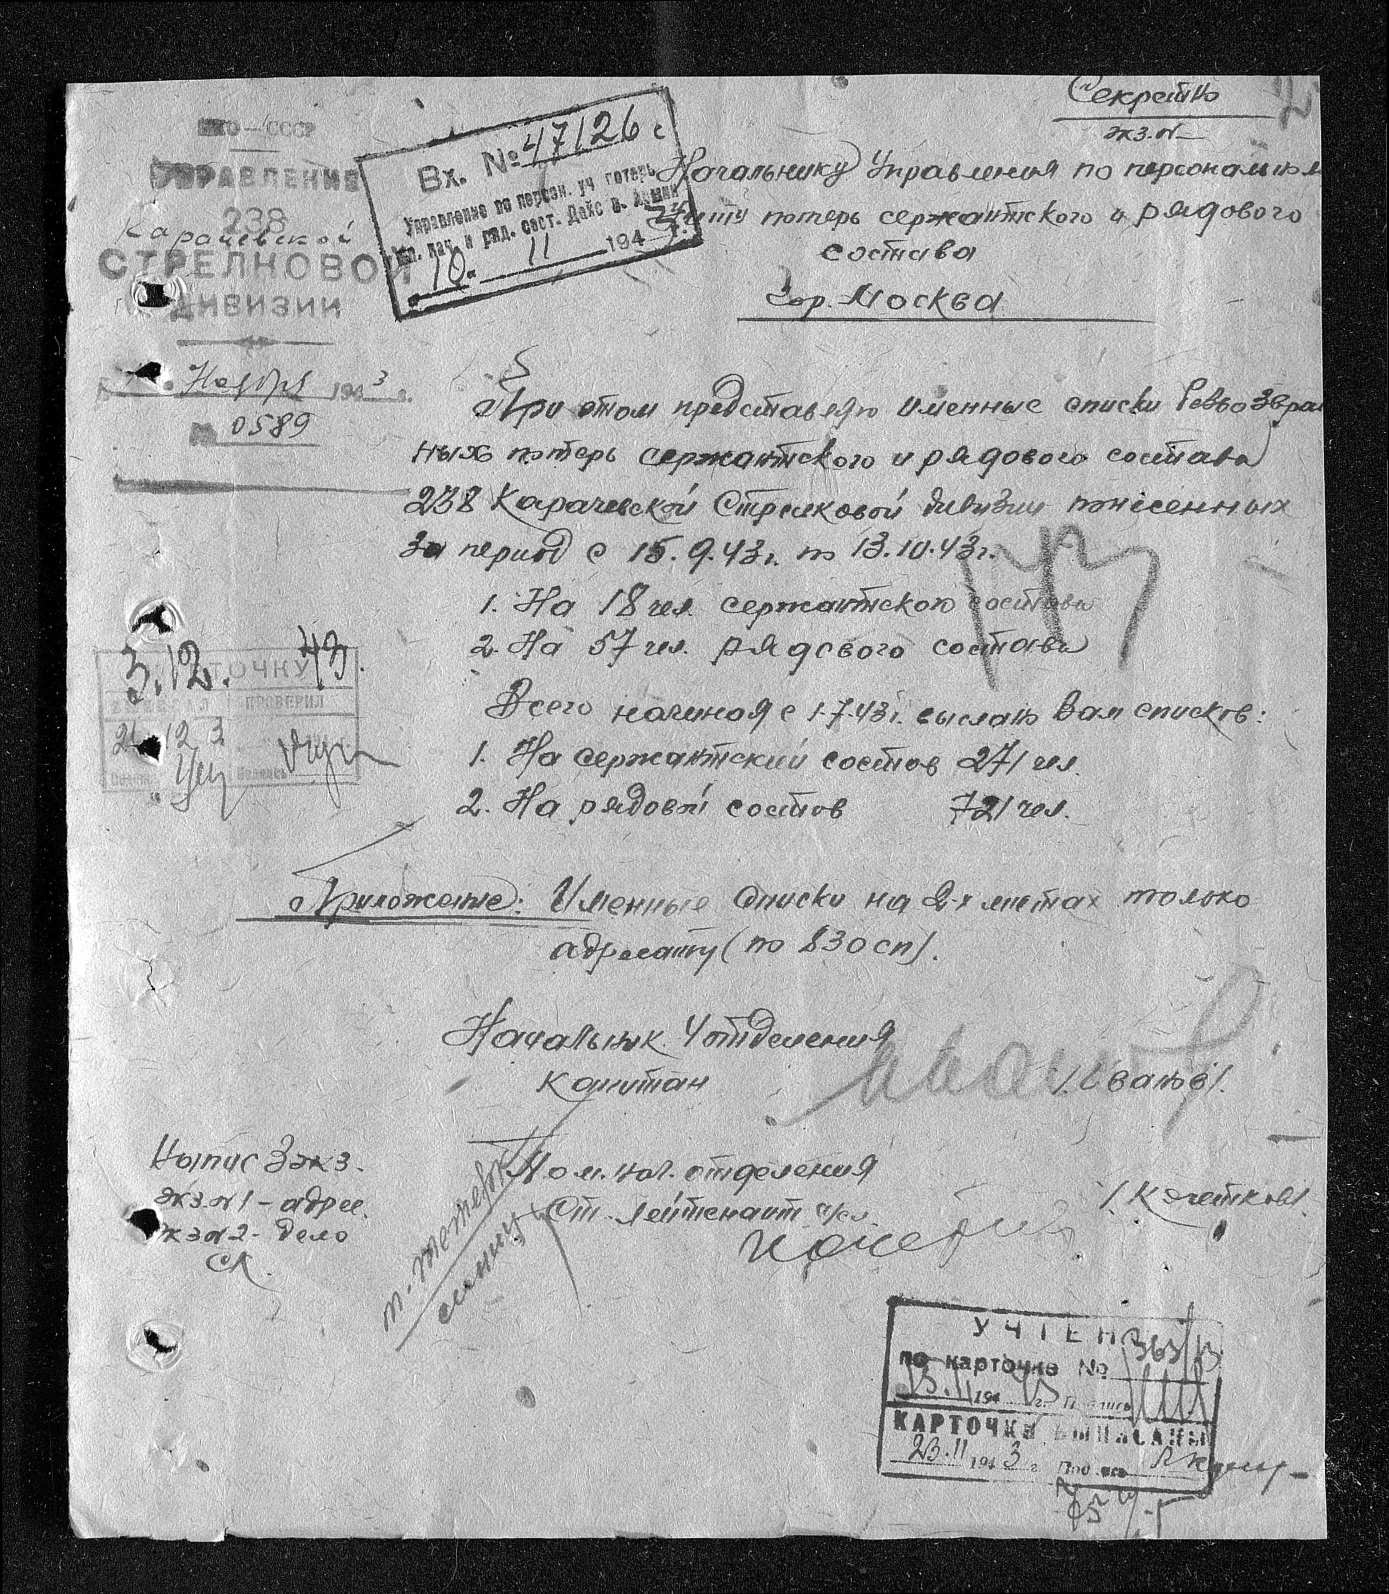 Секретно
экз. №
НКО—СССР
УПРАВЛЕНИЕ
238
Карачевской
СТРЕЛКОВОЙ
ДИВИЗИИ
Ноября 1943 г.
№ 0589
Вх. № 47126 с
Управление по персон. уч. потерь
мл. нач. и ряд. сост. Действ. Армии
"10" 11 1943 г.
Начальнику Управления по персональном
учету потерь сержантского и рядового
состава
гор. Москва
При этом представляю именные списки безвозврат
ных потерь сержантского и рядового состава
238 Карачевской Стрелковой дивизии понесенных
за период с 15.9.43г. по 13.10.43г.
1. На 18 чел. сержантского состава
2. На 57 чел. рядового состава
Всего начиная с 1.7.43г. выслано Вам списков:
1. На сержантский состав 271 чел.
2. На рядовой состав 721 чел.
3.12. 43.
КАРТОЧКУ
ПРОВЕРИЛ
Приложение: Именные списки на 2-х листах только
адресату (по 830 сп).
Начальник 4 отделения
капитан /Иванов/.
Пом. нач. отделения
Ст. лейтенант а/сл. /Кочетков/.
Выпис 3 экз.
экз №1 - адрес.
экз №2 - дело
СК.
УЧТЕН
по карточке № 363/13
13.11 1943 г. Подпись
КАРТОЧКИ ВЫПИСАНЫ
23.11 1943 г. Подпись